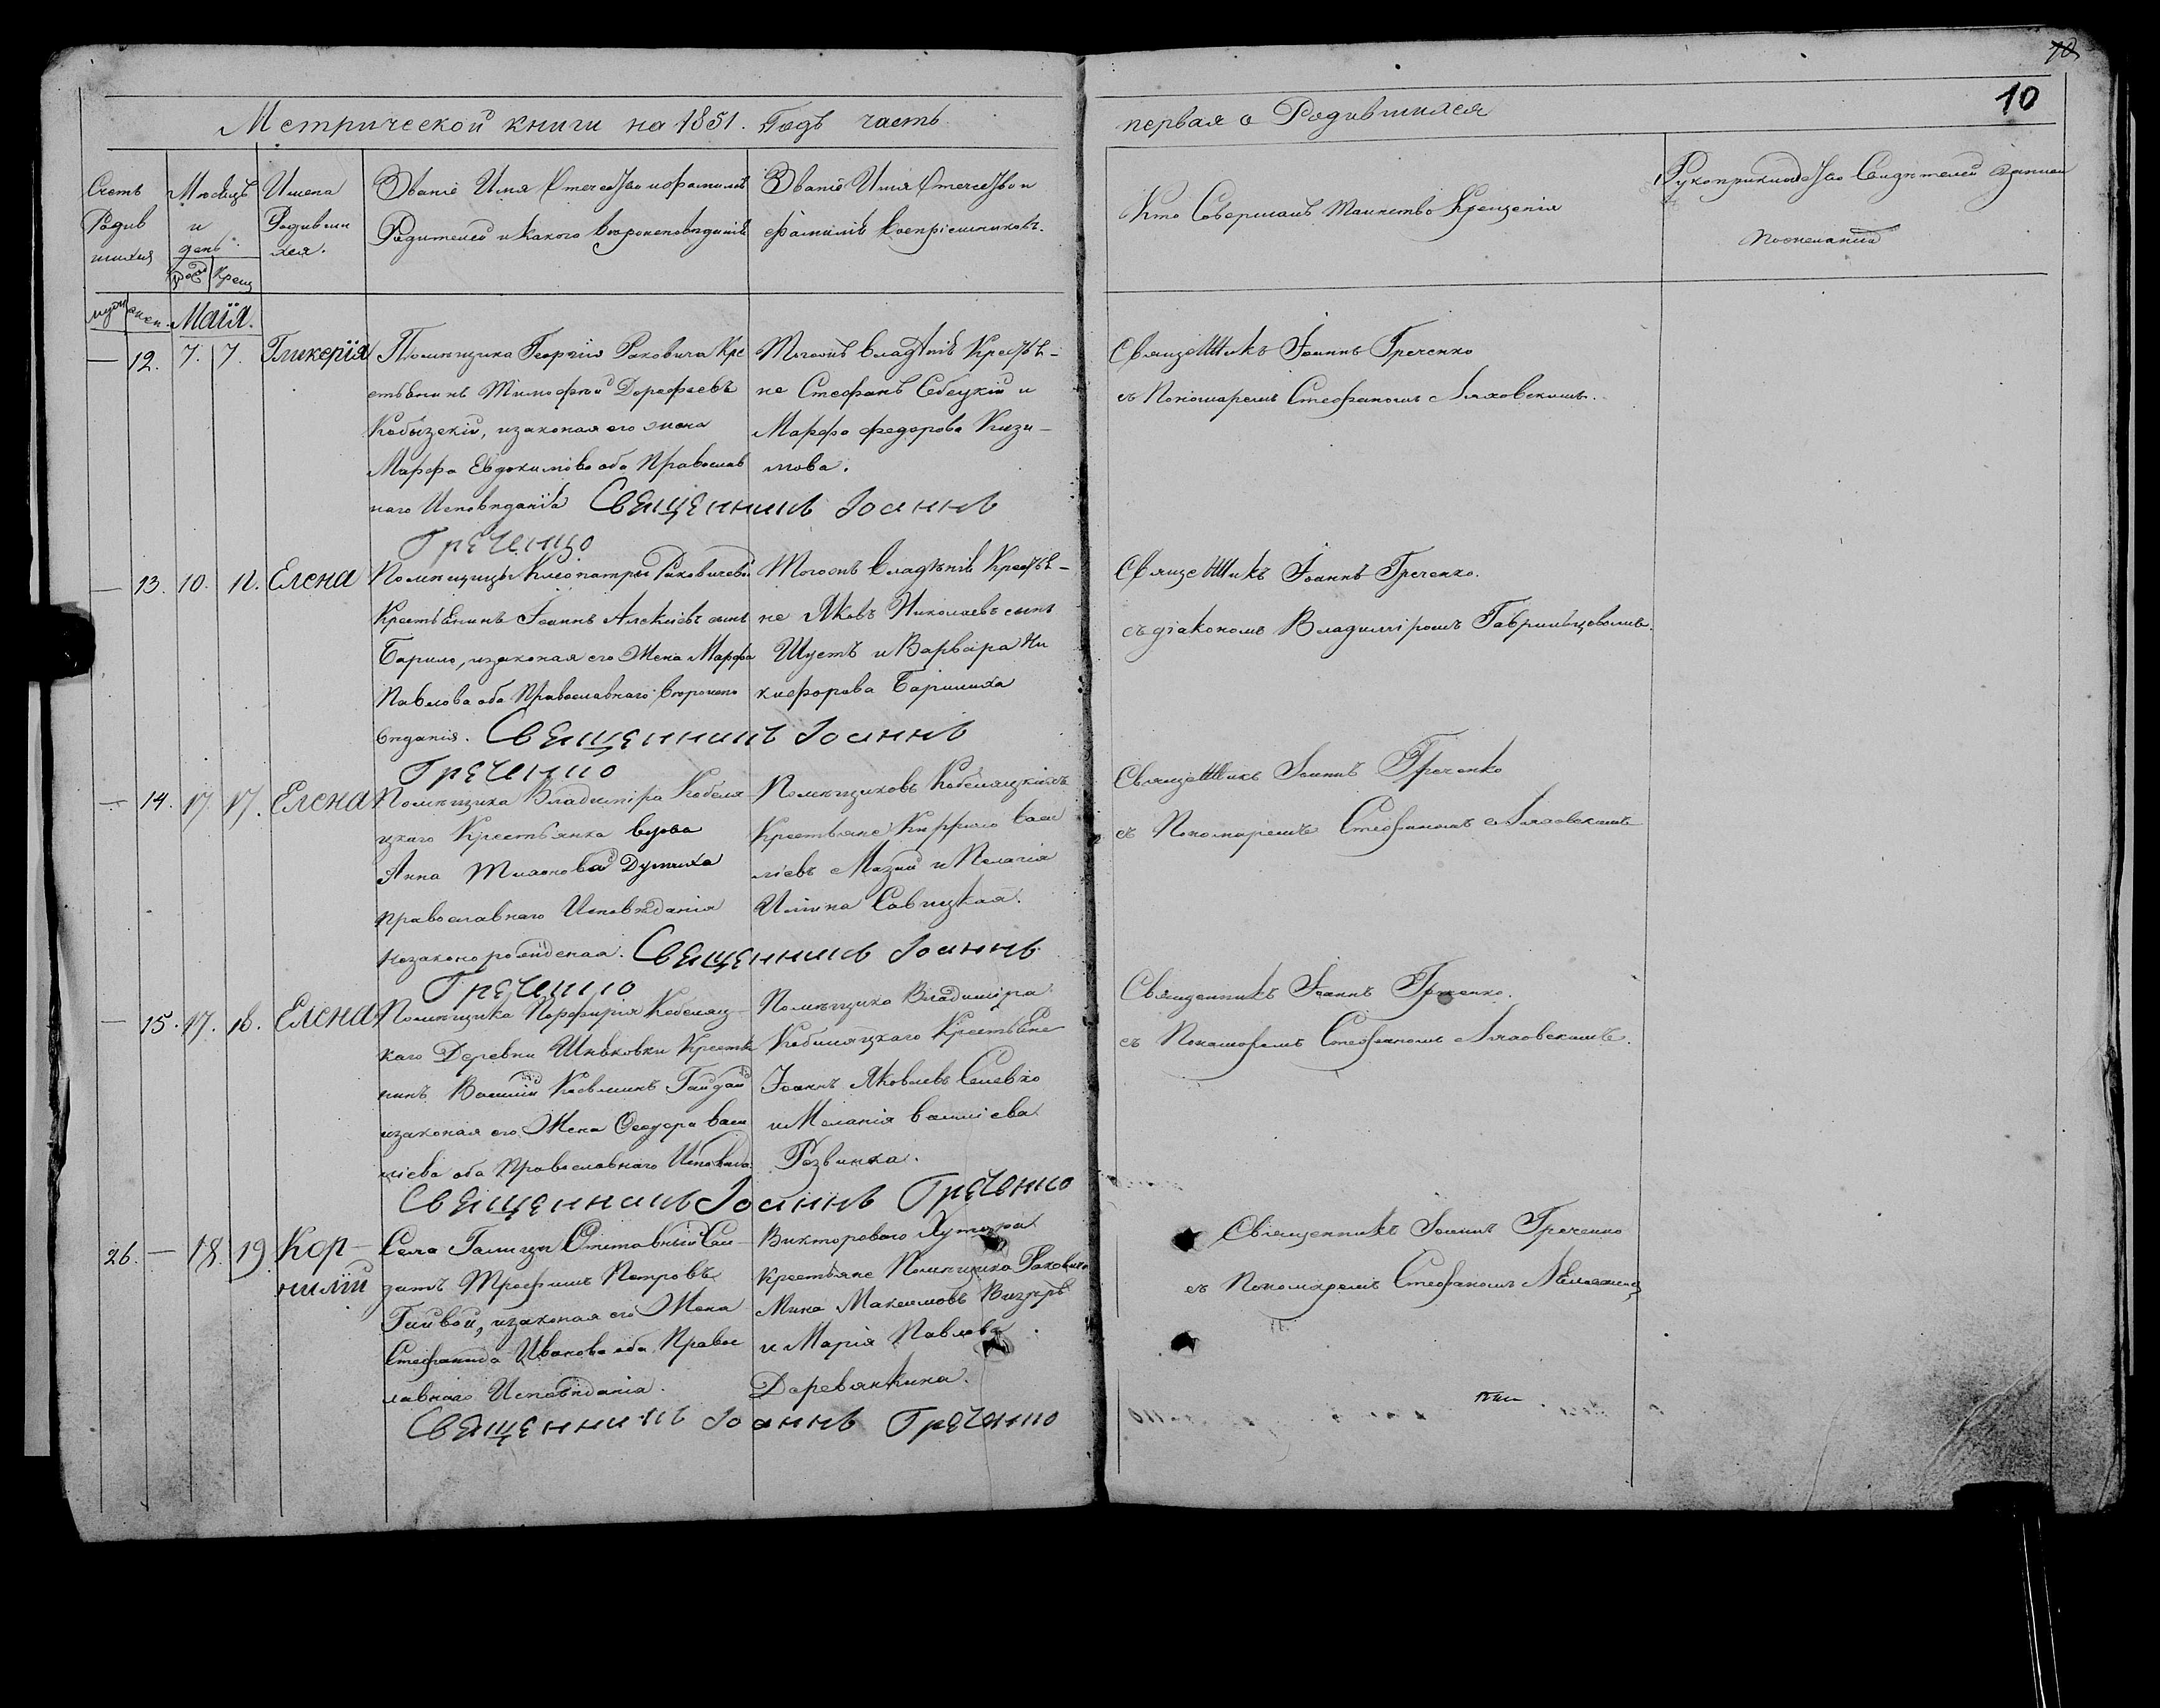 10
10
Метрической книги на 1851. Годъ часть
первая о Родившихся
Счетъ Родив шихся
Месяцъ и день
Рожд Крещ
Имена Родивши хся.
Званіе Имя Отчество и фамилія
Родителей и какого вероисповеданія
Званіе Имя Отчество и
фамилія воспріемниковъ.
Кто Совершалъ таинство Крещенія
Рукоприкладство Свидетелей записи
по желанію
муж жен.
Маія.
— 12. 7. 7. Гликерія
Помещика Георгія Раковича Кре
стьянинъ Тимофей Дорофеевъ
Кобызскій, и законая его жена
Марфа Евдокимова оба Православ
наго Исповеданія Священникъ Іоаннъ
Греченко
Тогожъ владенія Крестья-
не Стефанъ Себецкій и
Марфа Федорова Кизи-
мова.
Священникъ Іоаннъ Греченко
съ Пономаремъ Стефаномъ Ляховскимъ.
— 13. 10. 12. Елена
Помещицы Клеопатры Раковичевой
Крестьянинъ Іоаннъ Алексіевъ сынъ
Барило, и законая его Жена Марфа
Павлова оба Православнаго Вероиспо
веданія. Священникъ Іоаннъ
Греченко
Тогожъ владенія Крестья-
не Яковъ Николаевъ сынъ
Шустъ и Варвара Ни
кифорова Барилиха
Священникъ Іоаннъ Греченко.
съ діакономъ Владиміромъ Гаврильцовымъ.
— 14. 17. 17. Елена
Помещика Владиміра Кобеля
цкаго Крестьянка вдова
Анна Тихонова
православнаго Исповеданія
незаконорожденая. Священникъ Іоаннъ
Греченко
Помещиковъ Кобеляцкихъ
Крестьяне Кирило Васи
ліевъ Мазий и Пелагія
Савицкая.
Священникъ Іоаннъ Греченко
съ Пономаремъ Стефаномъ Ляховскимъ
— 15. 17. 18. Елена
Помещика Порфирія Кобеляц-
каго Деревни Крестья
нинъ Василій Гайдай
и законая его Жена Феодора Васи
ліева оба Православнаго Исповеда.
Священникъ Іоаннъ Греченко
Помещика Владиміра
Кобеляцкаго Крестьяне
Іоаннъ Яковлевъ
и Меланія Василіева
Священникъ Іоаннъ Греченко.
съ Пономаремъ Стефаномъ Ляховскимъ.
26. — 18. 19. Кор-
нилій
Села Галицы Отставный Сол-
датъ Трофимъ Петровъ
и законая его Жена
Стефанида Иванова оба Правос
лавнаго Исповеданія.
Священникъ Іоаннъ Греченко
Викторового Хутора
Крестьяне Помещика Раковича
Мина Максимовъ
и Марія Павлова
Деревянкина.
Священникъ Іоаннъ Греченко
съ Пономаремъ Стефаномъ